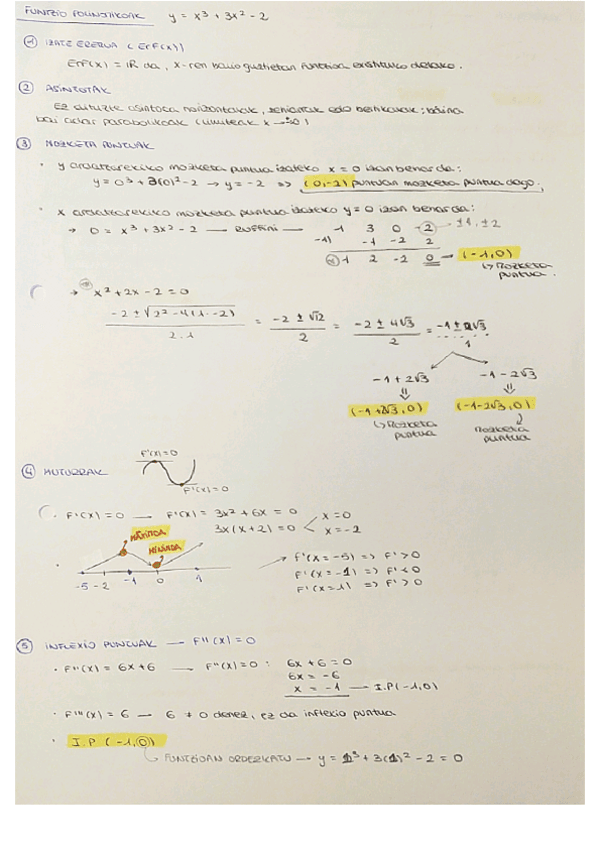 FUNTZIO POLINOMIKOAK y = x³ + 3x² - 2
① IZATE EREMUA (Er F(x))
Er F(x) = ℝ da, x-ren balio guztietan funtzioa existituko delako.
② ASINTOTAK
Ez dituzte asintota horizontalak, zeiharrak edo bertikalak; baina
bai adar parabolikoak (limiteak x → ±∞)
③ MOZKETA PUNTUAK
• y ardatzarekiko mozketa puntua izateko x = 0 izan behar da:
y = 0³ + 3(0)² - 2 → y = -2 => (0,-2) puntuan mozketa puntua dago.
• x ardatzarekiko mozketa puntua izateko y = 0 izan behar da:
→ 0 = x³ + 3x² - 2 — RUFFINI — 1 3 0 -2 → ±1, ±2
-1) -1 -2 2
1 2 -2 0 → (-1,0)
↳ Mozketa puntua.
→ x² + 2x - 2 = 0
-2 ± √2² - 4(1·-2) / 2·1 = -2 ± √12 / 2 = -2 ± 4√3 / 2 = -1 ± 2√3 / 1
-1 + 2√3 -1 - 2√3
(-1+2√3, 0) (-1-2√3, 0)
↳ Mozketa puntua Mozketa puntua
④ MUTURRAK F'(x)=0
F'(x)=0
• F'(x) = 0 — F'(x) = 3x² + 6x = 0 x = 0
3x(x+2) = 0 x = -2
MÁXIMOA MÍNIMOA
-5 -2 -1 0 1
F'(x = -5) => F' > 0
F'(x = -1) => F' < 0
F'(x = 1) => F' > 0
⑤ INFLEXIO PUNTUAK — F''(x) = 0
• F''(x) = 6x + 6 — F''(x) = 0 : 6x + 6 = 0
6x = -6
x = -1 — I.P (-1,0)
• F'''(x) = 6 — 6 ≠ 0 denez, ez da inflexio puntua
• I.P (-1,0)
↳ FUNTZIOAN ORDEZKATU — y = 1³ + 3(1)² - 2 = 0